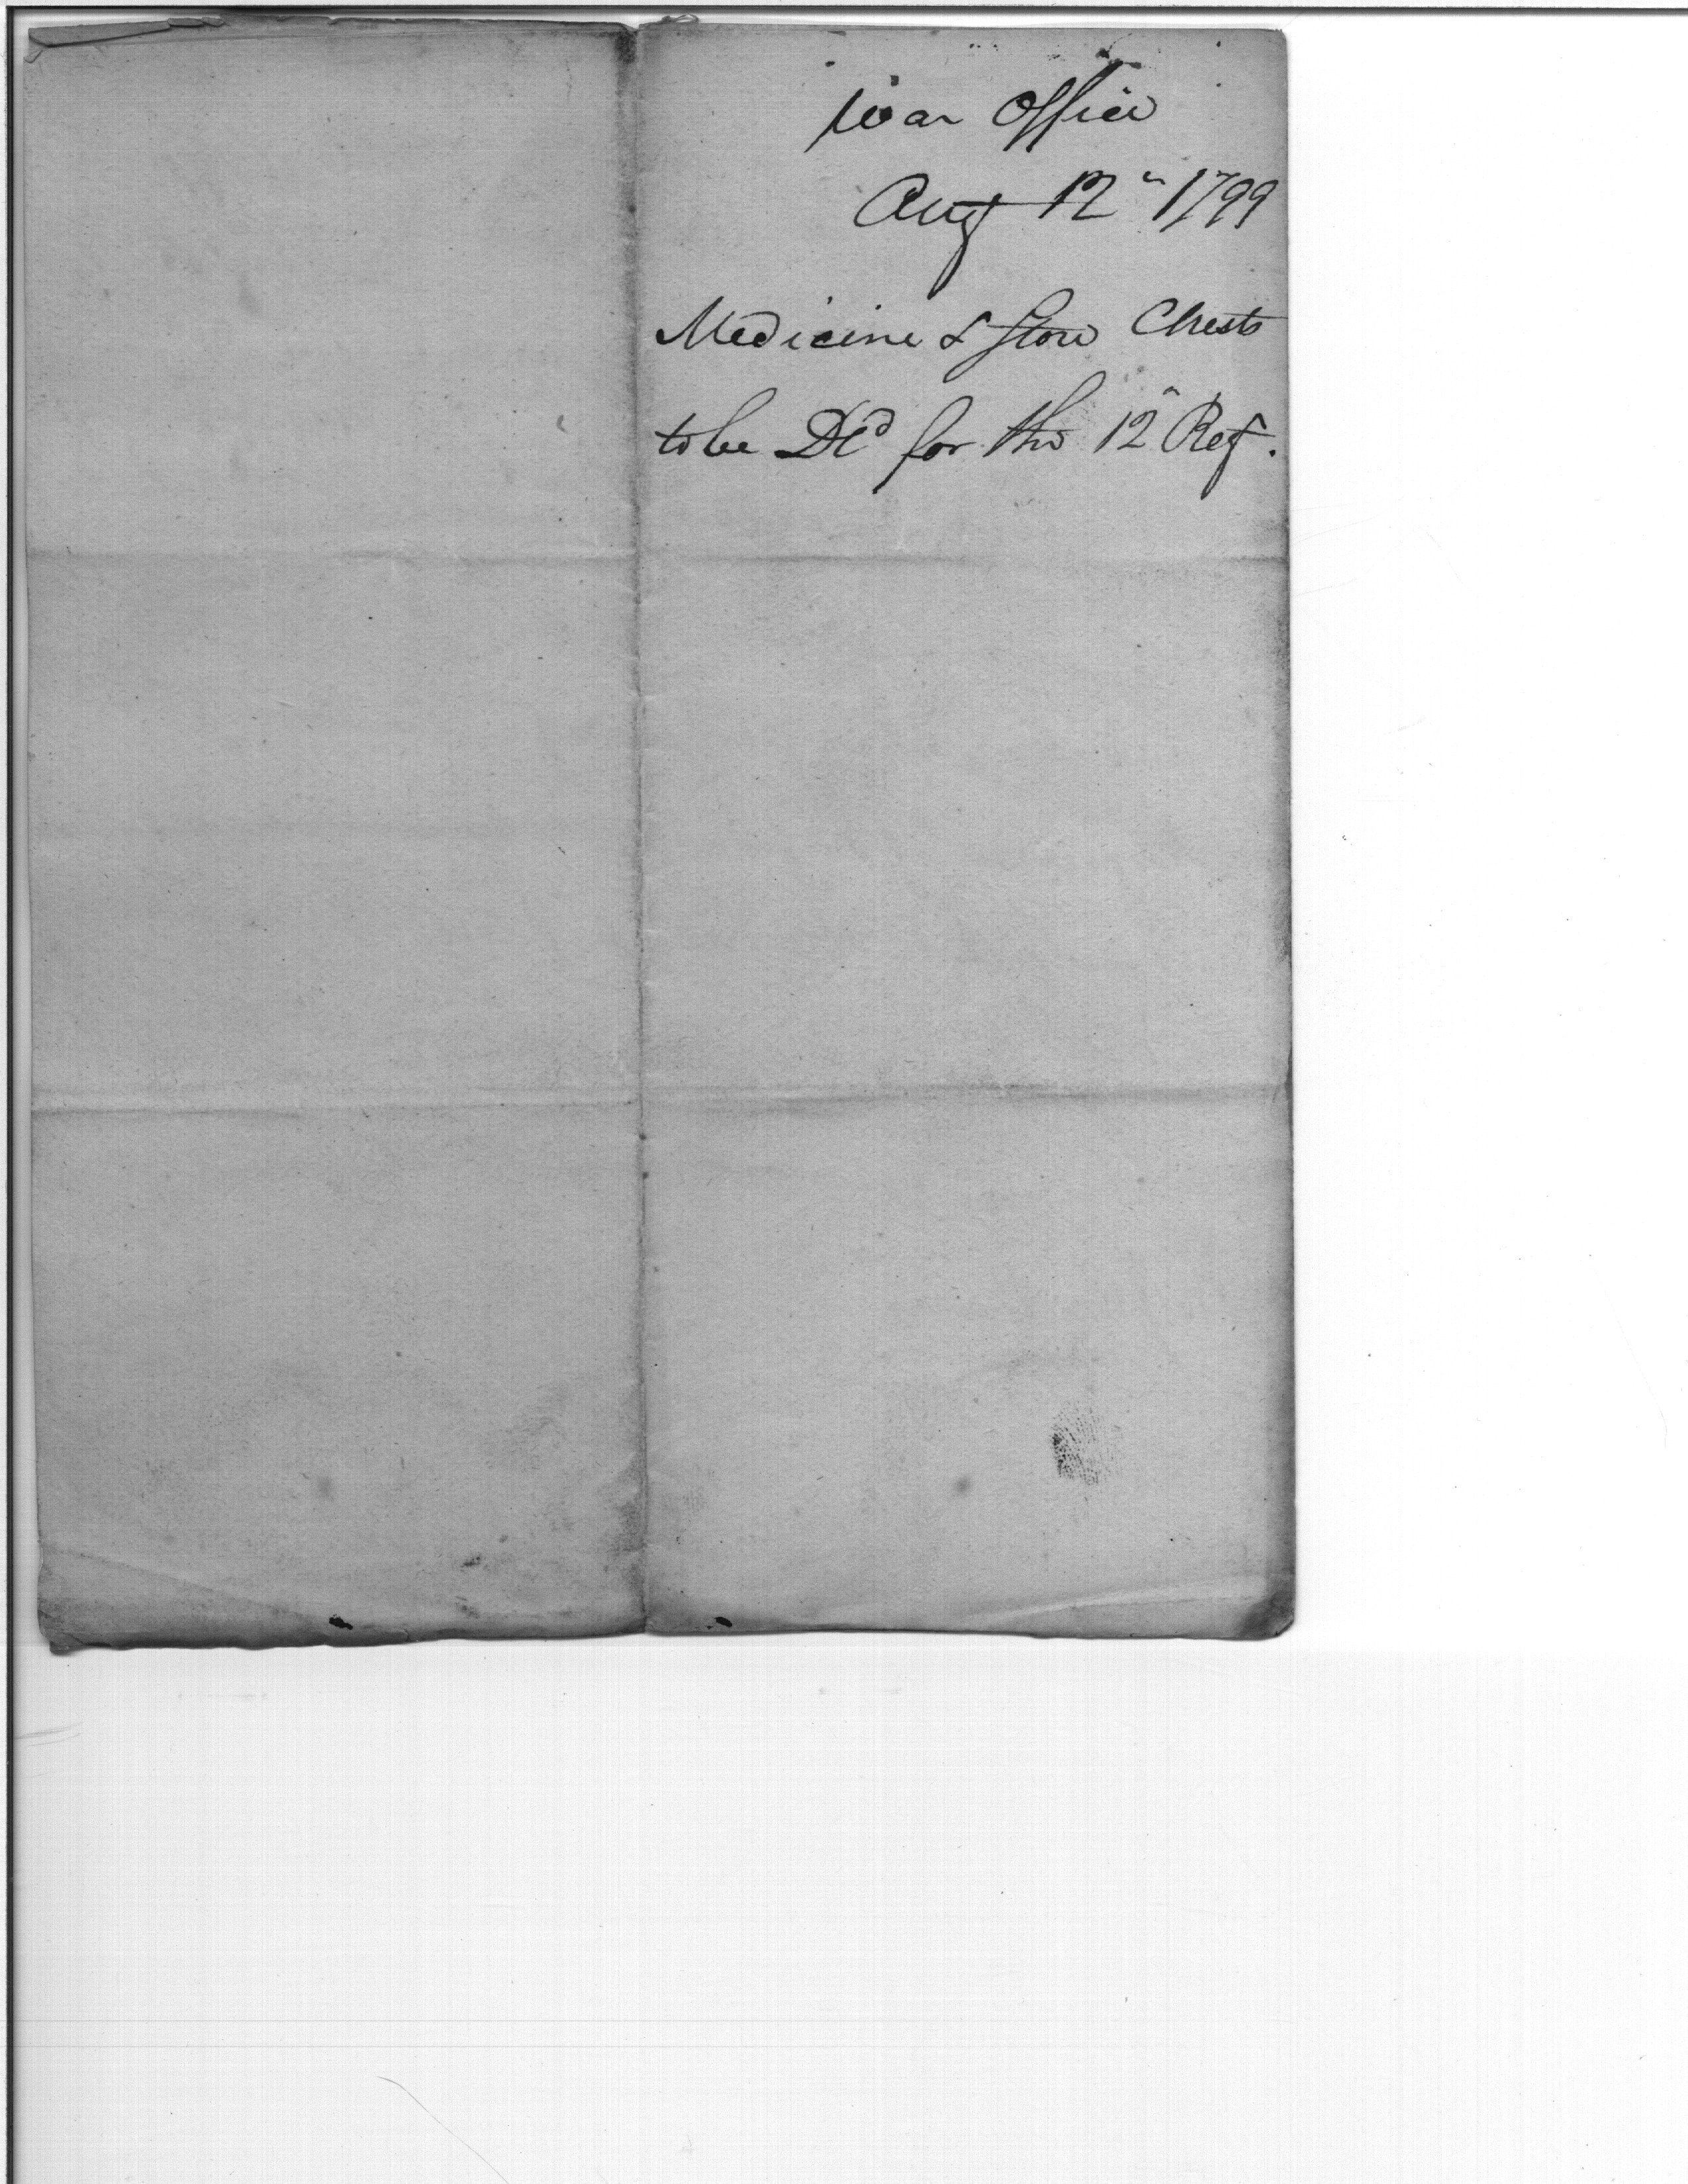 War Office
Aug 12" 1799
Medicine & Store Chests
to be Dd for the 12" Reg.